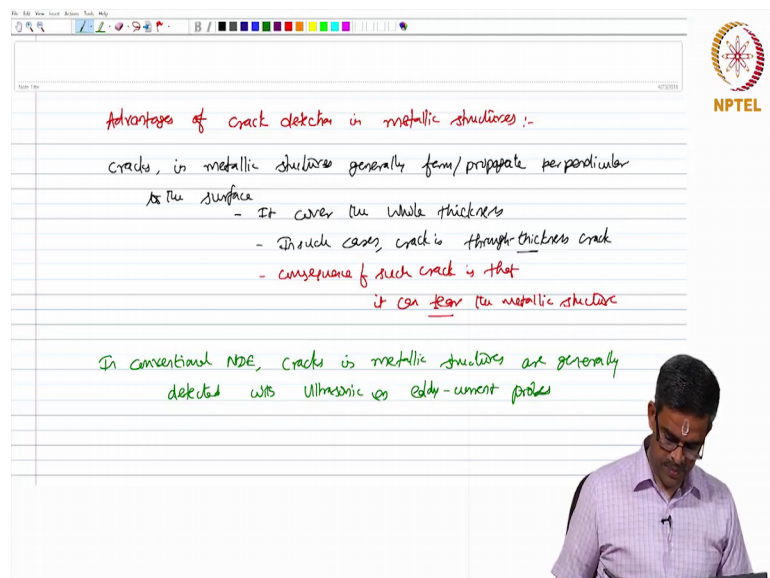 File Edit View Insert Actions Tools Help
B I
Note Title
4/23/2018
NPTEL
Advantages of crack detection in metallic structures :-
cracks, in metallic structures generally form/propagate perpendicular
to the surface
- It cover the whole thickness
- In such cases, crack is through-thickness crack
- consequence of such crack is that
it can tear the metallic structure
In conventional NDE, cracks in metallic structures are generally
detected with Ultrasonic or eddy-current probes